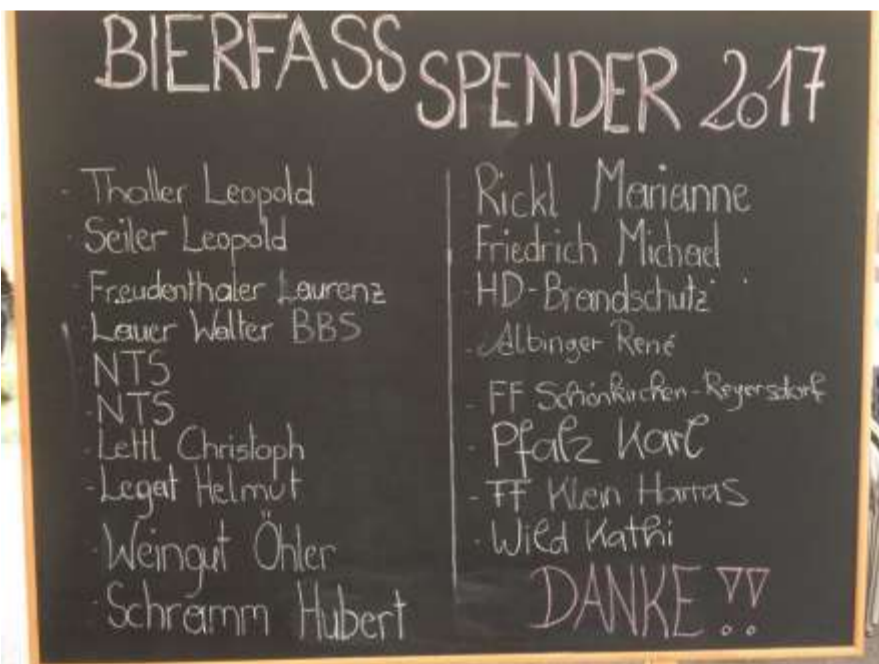 BIERFASS SPENDER 2017
- Thaller Leopold
- Seiler Leopold
- Freudenthaler Laurenz
- Lauer Walter BBS
NTS
- NTS
- Lettl Christoph
- Legat Helmut
- Weingut Öhler
- Schramm Hubert
Rickl Marianne
Friedrich Michael
HD-Brandschutz
- Albinger René
- FF Schönkirchen-Reyersdorf
- Pfalz Karl
- FF Klein Harras
- Wild Kathi
DANKE!!